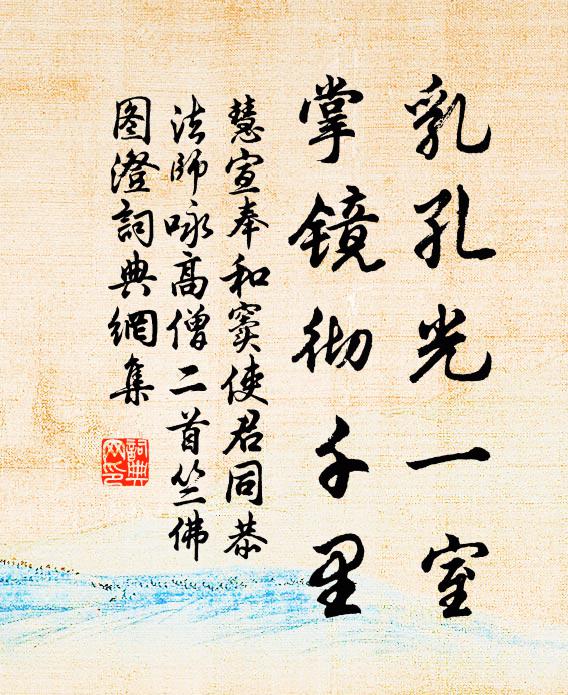 乳孔光一室
掌镜彻千里
慧宣奉和窦使君同恭
法師咏高僧二首竺佛
图澄詞典網集
詞典